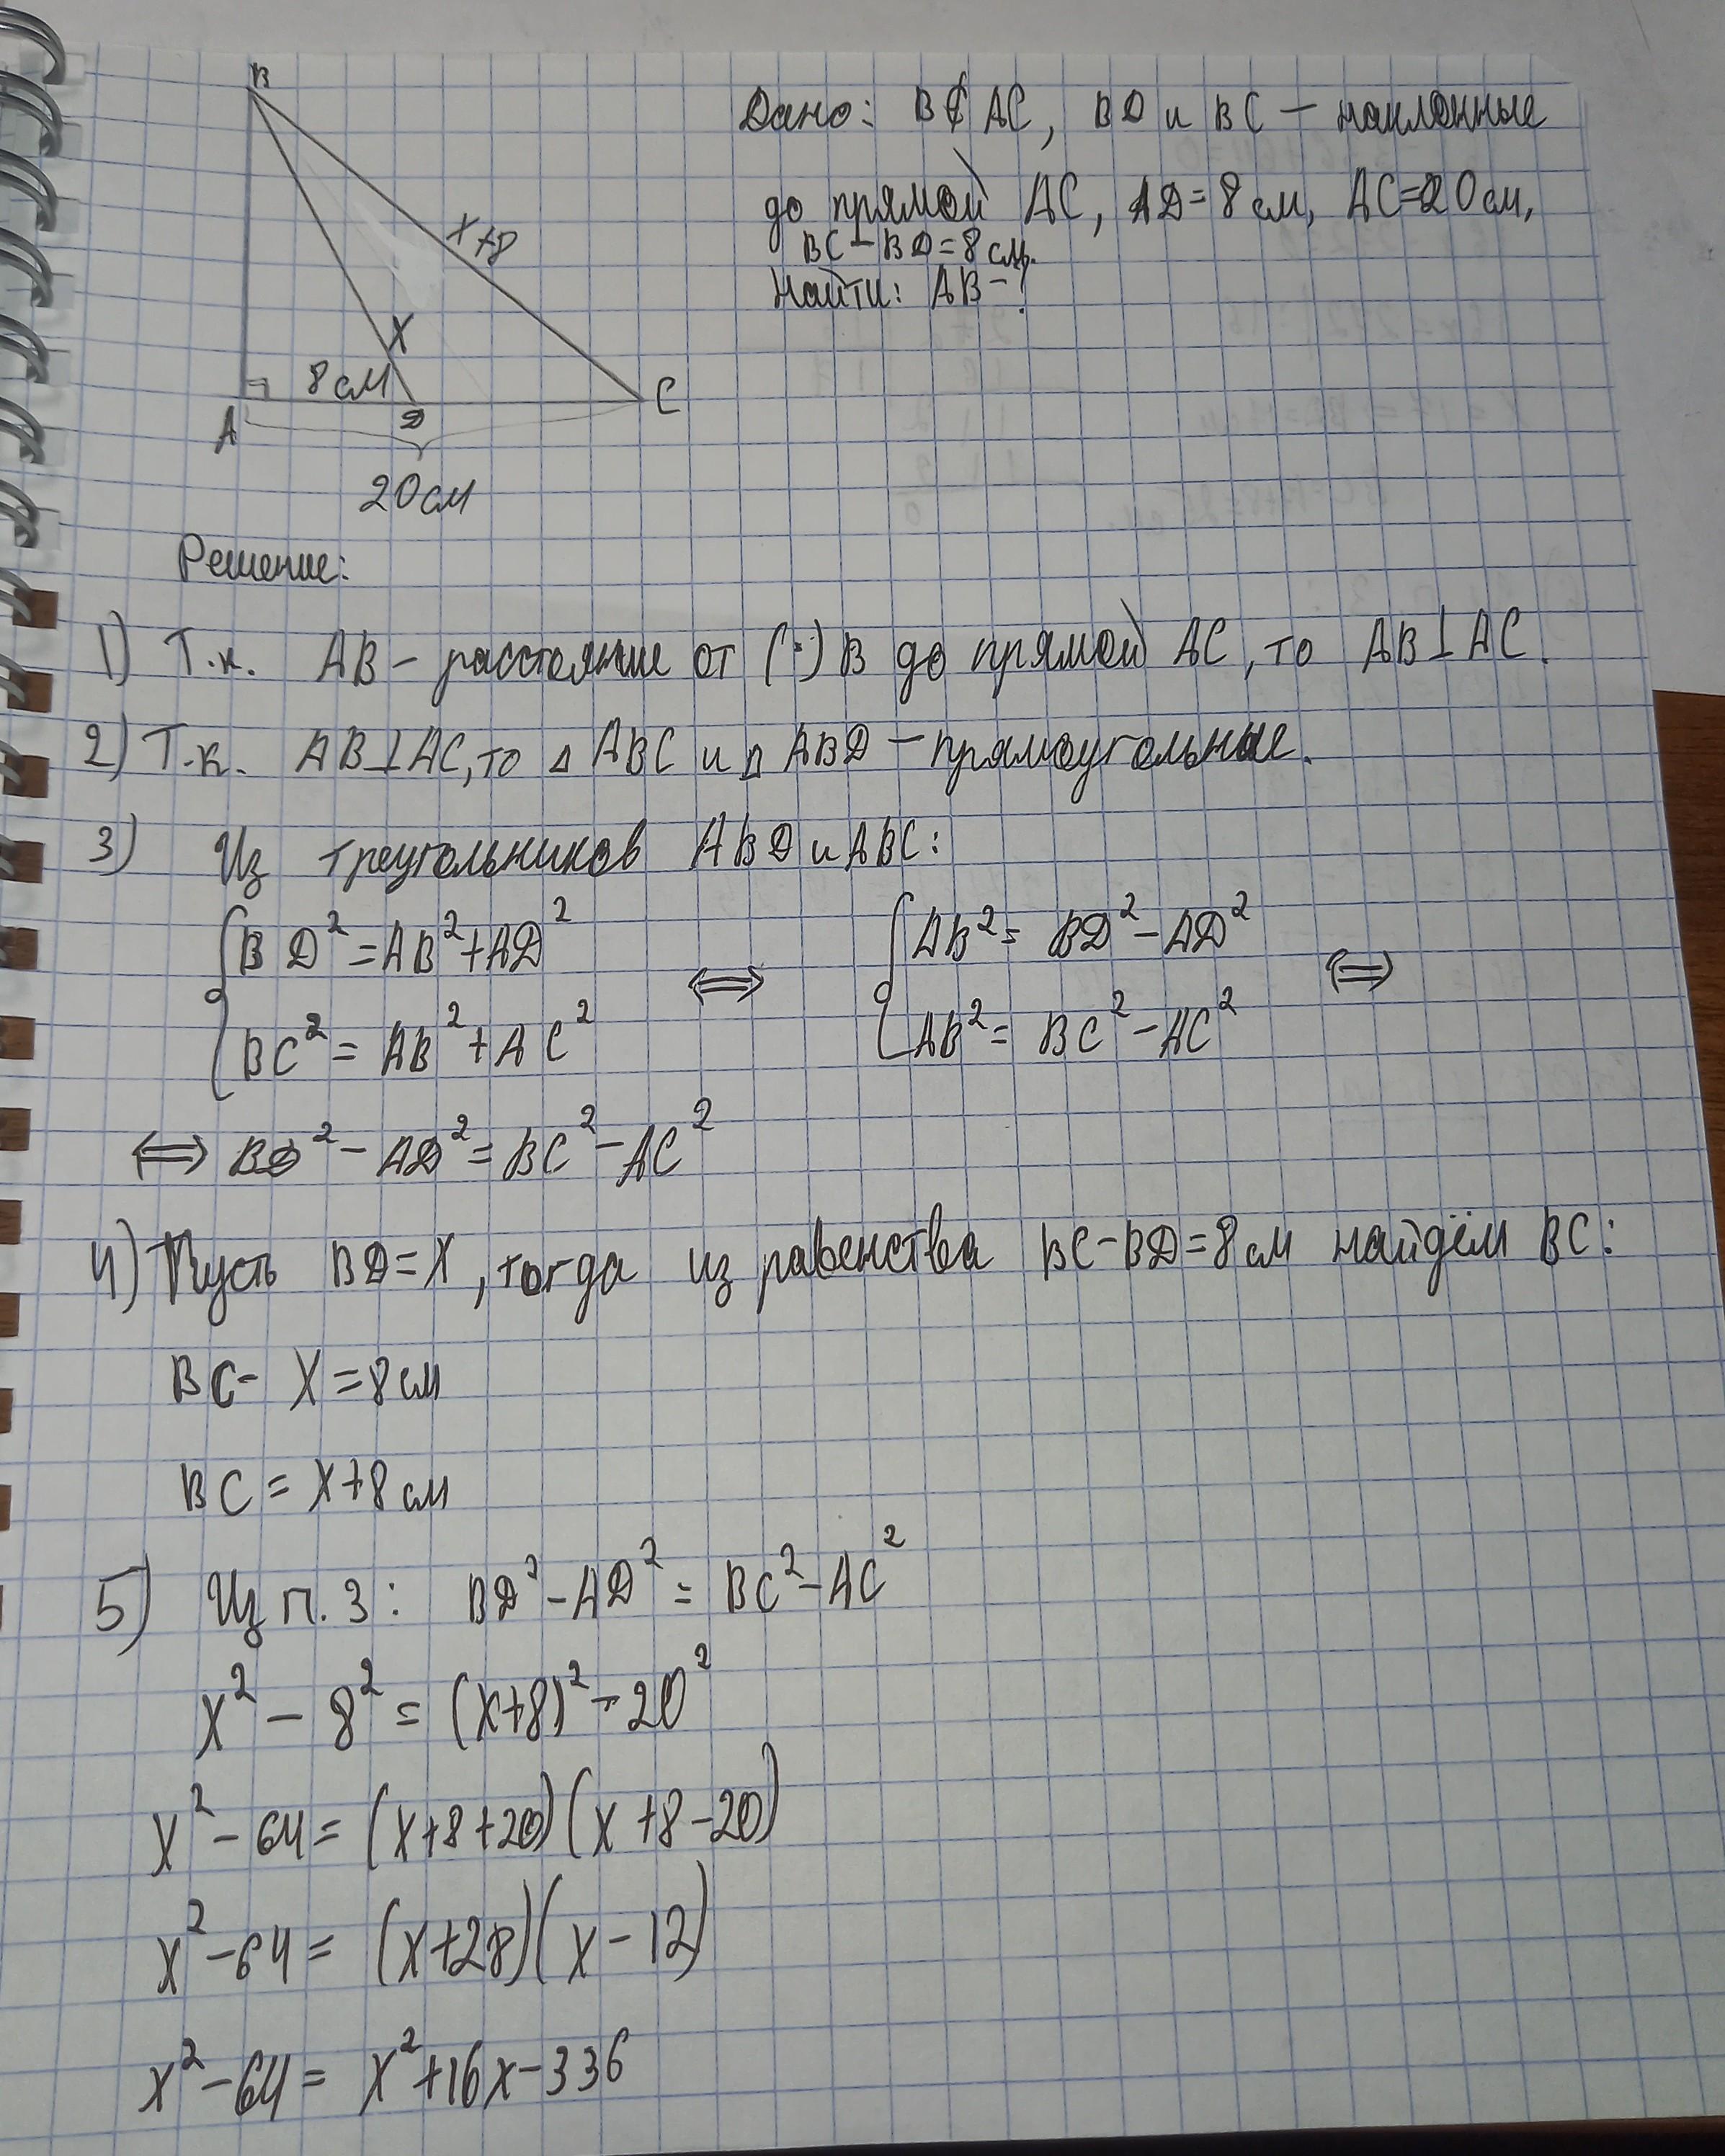 B
x+8
X
8 см
A
D
C
20 см
Дано: B ∉ AC, BD и BC – наклонные
до прямой AC, AD = 8 см, AC = 20 см,
BC – BD = 8 см.
Найти: AB – ?
Решение:
1) Т.к. AB – расстояние от (·) B до прямой AC, то AB ⊥ AC.
2) Т.к. AB ⊥ AC, то △ ABC и △ ABD – прямоугольные.
3) Из треугольников ABD и ABC:
{ BD² = AB² + AD² ⟺ { AB² = BD² – AD² ⟺
BC² = AB² + AC² AB² = BC² – AC²
⟺ BD² – AD² = BC² – AC²
4) Пусть BD = X, тогда из равенства BC – BD = 8 см найдём BC:
BC – X = 8 см
BC = X + 8 см
5) Из п. 3: BD² – AD² = BC² – AC²
x² – 8² = (x+8)² – 20²
x² – 64 = (x+8+20)(x+8–20)
x² – 64 = (x+28)(x–12)
x² – 64 = x² + 16x – 336